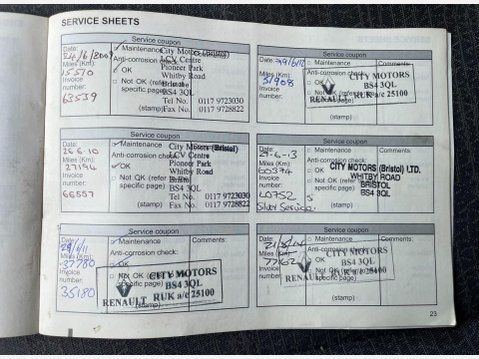 SERVICE SHEETS
Service coupon
Date:
24/6/2009
✓ Maintenance
City Motors (Bristol)
LCV Centre
Miles (Km):
15510
Anti-corrosion check:
Pioneer Park
✓ OK
Whitby Road
Invoice
number:
63539
Not OK (refer to
specific page)
Bristol
BS4 3QL
Tel No. 0117 9723030
(stamp)
Fax No. 0117 9728822
Service coupon
Date:
Maintenance
Comments:
Miles (Km):
31908
Anti-corrosion check:
OK
CITY MOTORS
Invoice
number:
Not OK (refer to
specific page)
BS4 3QL
RENAULT
RUK a/c 25100
(stamp)
Service coupon
Date:
26.6.10
✓ Maintenance
City Motors (Bristol)
LCV Centre
Miles (Km):
27194
Anti-corrosion check:
Pioneer Park
OK
Whitby Road
Invoice
number:
66557
Not OK (refer to
specific page)
Bristol
BS4 3QL
Tel No. 0117 9723030
(stamp)
Fax No. 0117 9728822
Service coupon
Date:
Maintenance
Comments:
Miles (Km):
60374
Anti-corrosion check:
OK
CITY MOTORS (Bristol) LTD.
WHITBY ROAD
BRISTOL
BS4 3QL
Invoice
number:
Not OK (refer to
specific page)
Silver Service
(stamp)
Service coupon
Date:
Maintenance
Comments:
Miles (Km):
37780
Anti-corrosion check:
OK
Invoice
number:
35180
Not OK (refer to
specific page)
CITY MOTORS
BS4 3QL
RENAULT
RUK a/c 25100
(stamp)
Service coupon
Date:
Maintenance
Comments:
Miles (Km):
77162
Anti-corrosion check:
OK
Invoice
number:
Not OK (refer to
specific page)
CITY MOTORS
BS4 3QL
RENAULT
RUK a/c 25100
(stamp)
23